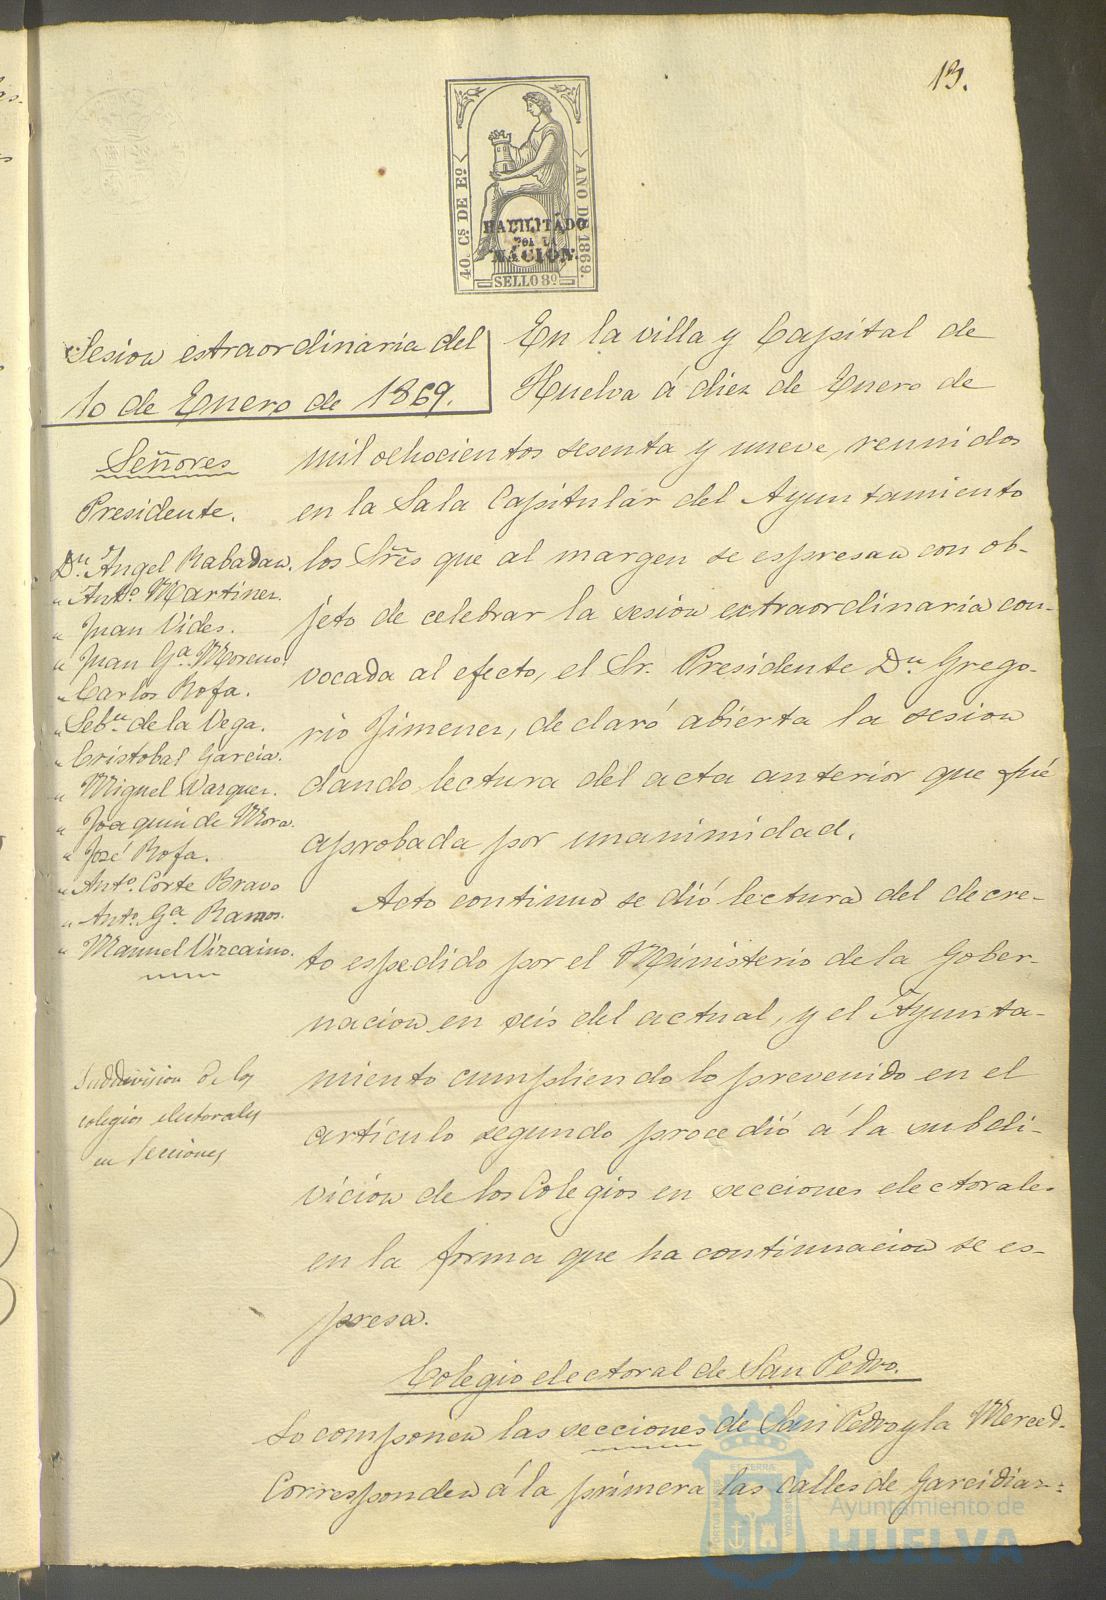 13.
40. Cs DE Eo.
AÑO DE 1869.
HABILITADO
POR LA
NACION.
SELLO 8º
Sesion estraordinaria del
10 de Enero de 1869.
Señores
Presidente.
Dn. Angel Rabadan.
" Anto. Martinez.
" Juan Vides.
" Juan Ga. Moreno.
" Carlos Rofa.
" Sebn. de la Vega.
" Cristobal Garcia.
" Miguel Vazquez.
" Joaquin de Mora.
" José Rofa.
" Anto. Corte Bravo
" Anto. Ga. Ramos.
" Manuel Vizcaino.
Subdivision de los
colegios electorales
en Secciones
En la villa y Capital de
Huelva á diez de Enero de
mil ochocientos sesenta y nueve, reunidos
en la Sala Capitular del Ayuntamiento
los Sres. que al margen se espresan con ob-
jeto de celebrar la sesion extraordinaria con-
vocada al efecto, el Sr. Presidente Dn. Grego-
rio Jimenez, declaró abierta la sesion
dando lectura del acta anterior que fué
aprobada por unanimidad.
Acto continuo se dió lectura del decre-
to espedido por el Ministerio de la Gober-
nacion en seis del actual, y el Ayunta-
miento cumpliendo lo prevenido en el
artículo segundo procedió á la subdi-
vición de los Colegios en secciones electorales
en la forma que ha continuacion se es-
presa.
Colegio electoral de San Pedro.
Lo componen las secciones de San Pedro y la Merced.
Corresponden á la primera las calles de Garcidiaz=
Ayuntamiento de
HUELVA